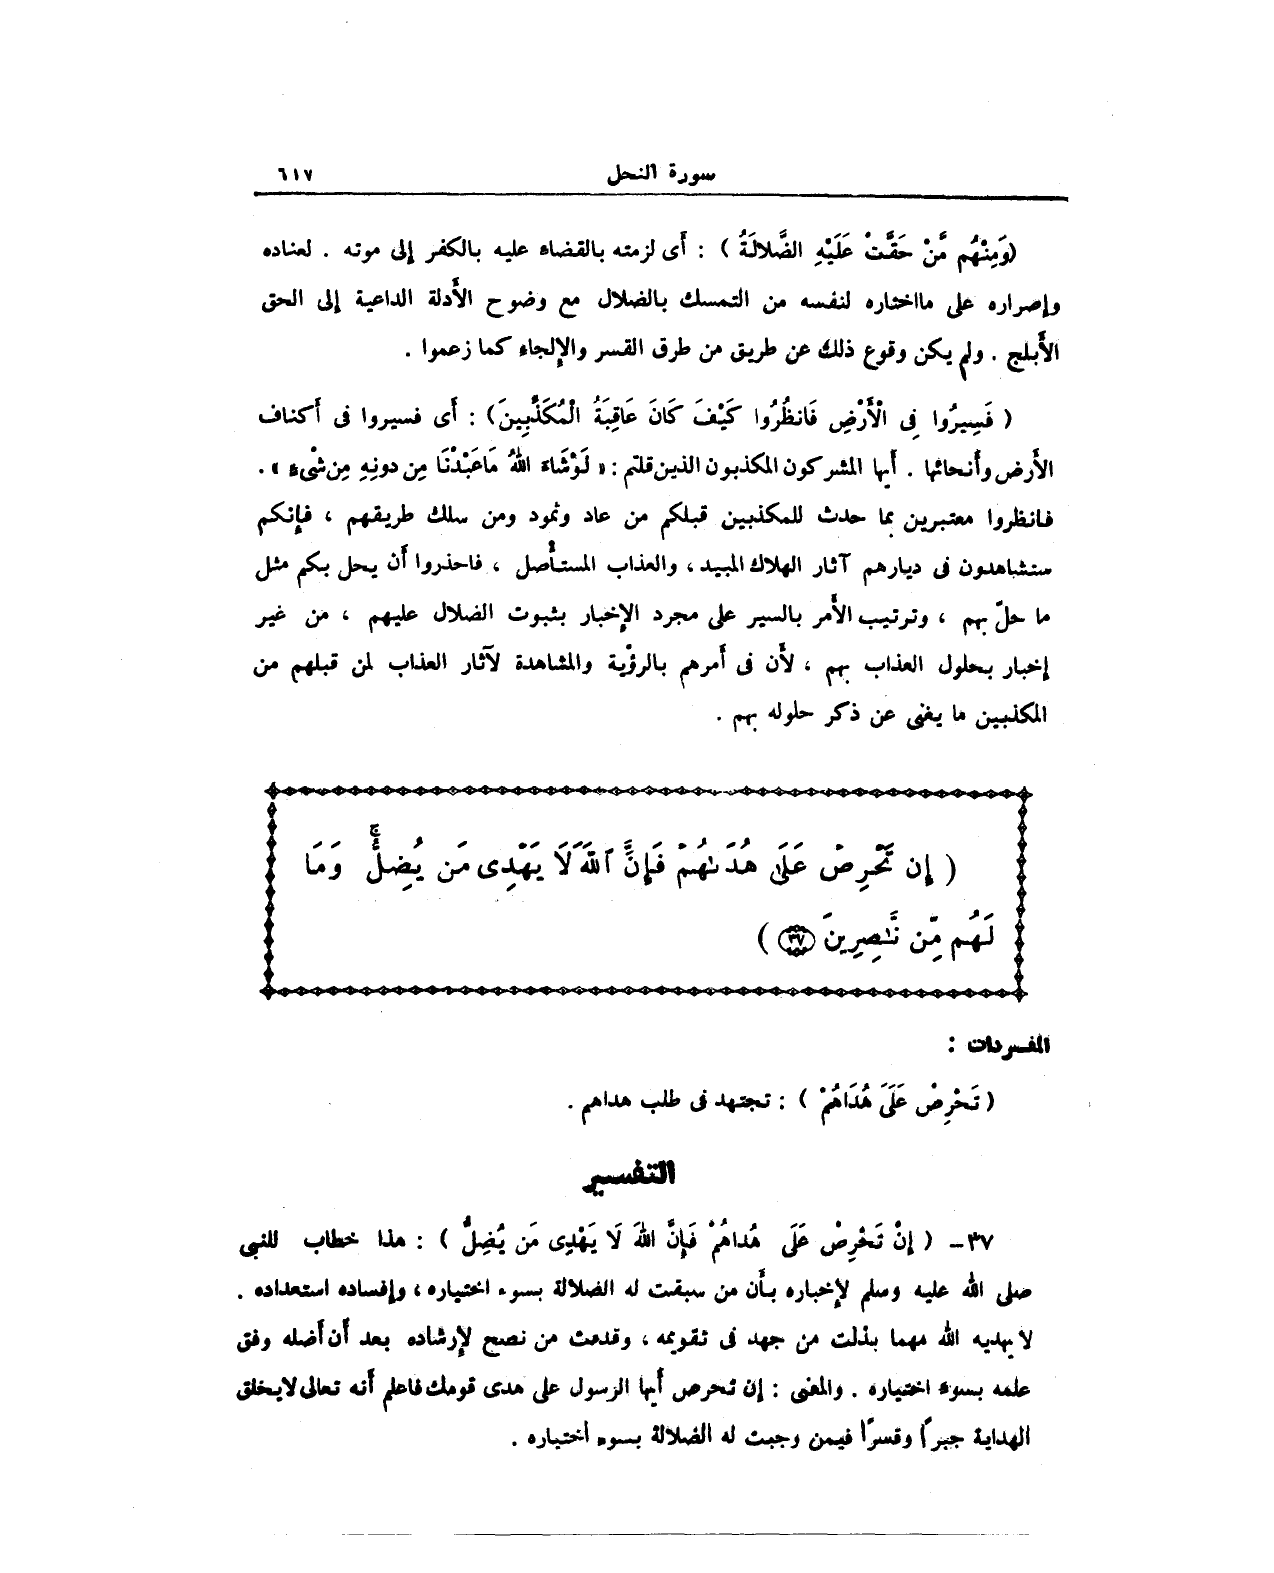 سورة النحل ٦١٧
(وَمِنْهُم مَّنْ حَقَّتْ عَلَيْهِ الضَّلَالَةُ ) : أَى لزمته بالقضاء عليه بالكفر إلى موته . لعناده
وإصراره على مااختاره لنفسه من التمسك بالضلال مع وضوح الأَدلة الداعية إلى الحق
الأَبلج . ولم يكن وقوع ذلك عن طريق من طرق القسر والإلجاء كما زعموا .
( فَسِيرُوا فِى الْأَرْضِ فَانظُرُوا كَيْفَ كَانَ عَاقِبَةُ الْمُكَذِّبِينَ) : أَى فسيروا فى أَكناف
الأَرض وأَنحائها . أَيها المشركون المكذبون الذين قلتم : « لَوْشَاءَ اللهُ مَاعَبَدْنَا مِن دونِهِ مِن شْىءٍ » .
فانظروا معتبرين بما حدث للمكذبين قبلكم من عاد وثمود ومن سلك طريقهم ، فإنكم
ستشاهدون فى ديارهم آثار الهلاك المبيد ، والعذاب المستأْصل ، فاحذروا أَن يحل بكم مثل
ما حلّ بهم ، وترتيب الأَمر بالسير على مجرد الإخبار بثبوت الضلال عليهم ، من غير
إخبار بحلول العذاب بهم ، لأَن فى أَمرهم بالرؤْية والمشاهدة لآثار العذاب لمن قبلهم من
المكذبين ما يغنى عن ذكر حلوله بهم .
( إِن تَحْرِصْ عَلَىٰ هُدَىٰهُمْ فَإِنَّ ٱللَّهَ لَا يَهْدِى مَن يُضِلُّ ۖ وَمَا
لَهُم مِّن نَّـٰصِرِينَ ٣٧ )
المفـردات :
( تَحْرِصْ عَلَىَ هُدَاهُمْ ) : تجتهد فى طلب هداهم .
التفسير
٣٧ـ ( إِنْ تَحْرِصْ عَلَى هُداهُمْ فَإِنَّ اللهَ لَا يَهْدِى مَن يُضِلُّ ) : هذا خطاب للنبى
صلى الله عليه وسلم لإخباره بأَن من سبقت له الضلالة بسوء اختياره ، وإفساده استعداده .
لا يهديه الله مهما بذلت من جهد فى تقويمه ، وقدمت من نصح لإرشاده بعد أَن أَضله وفق
علمه بسوء اختياره . والمعنى : إن تحرص أَيها الرسول على هدى قومك فاعلم أَنه تعالى لايخلق
الهداية جبرًا وقسرًا فيمن وجبت له الضلالة بسوء اختياره .